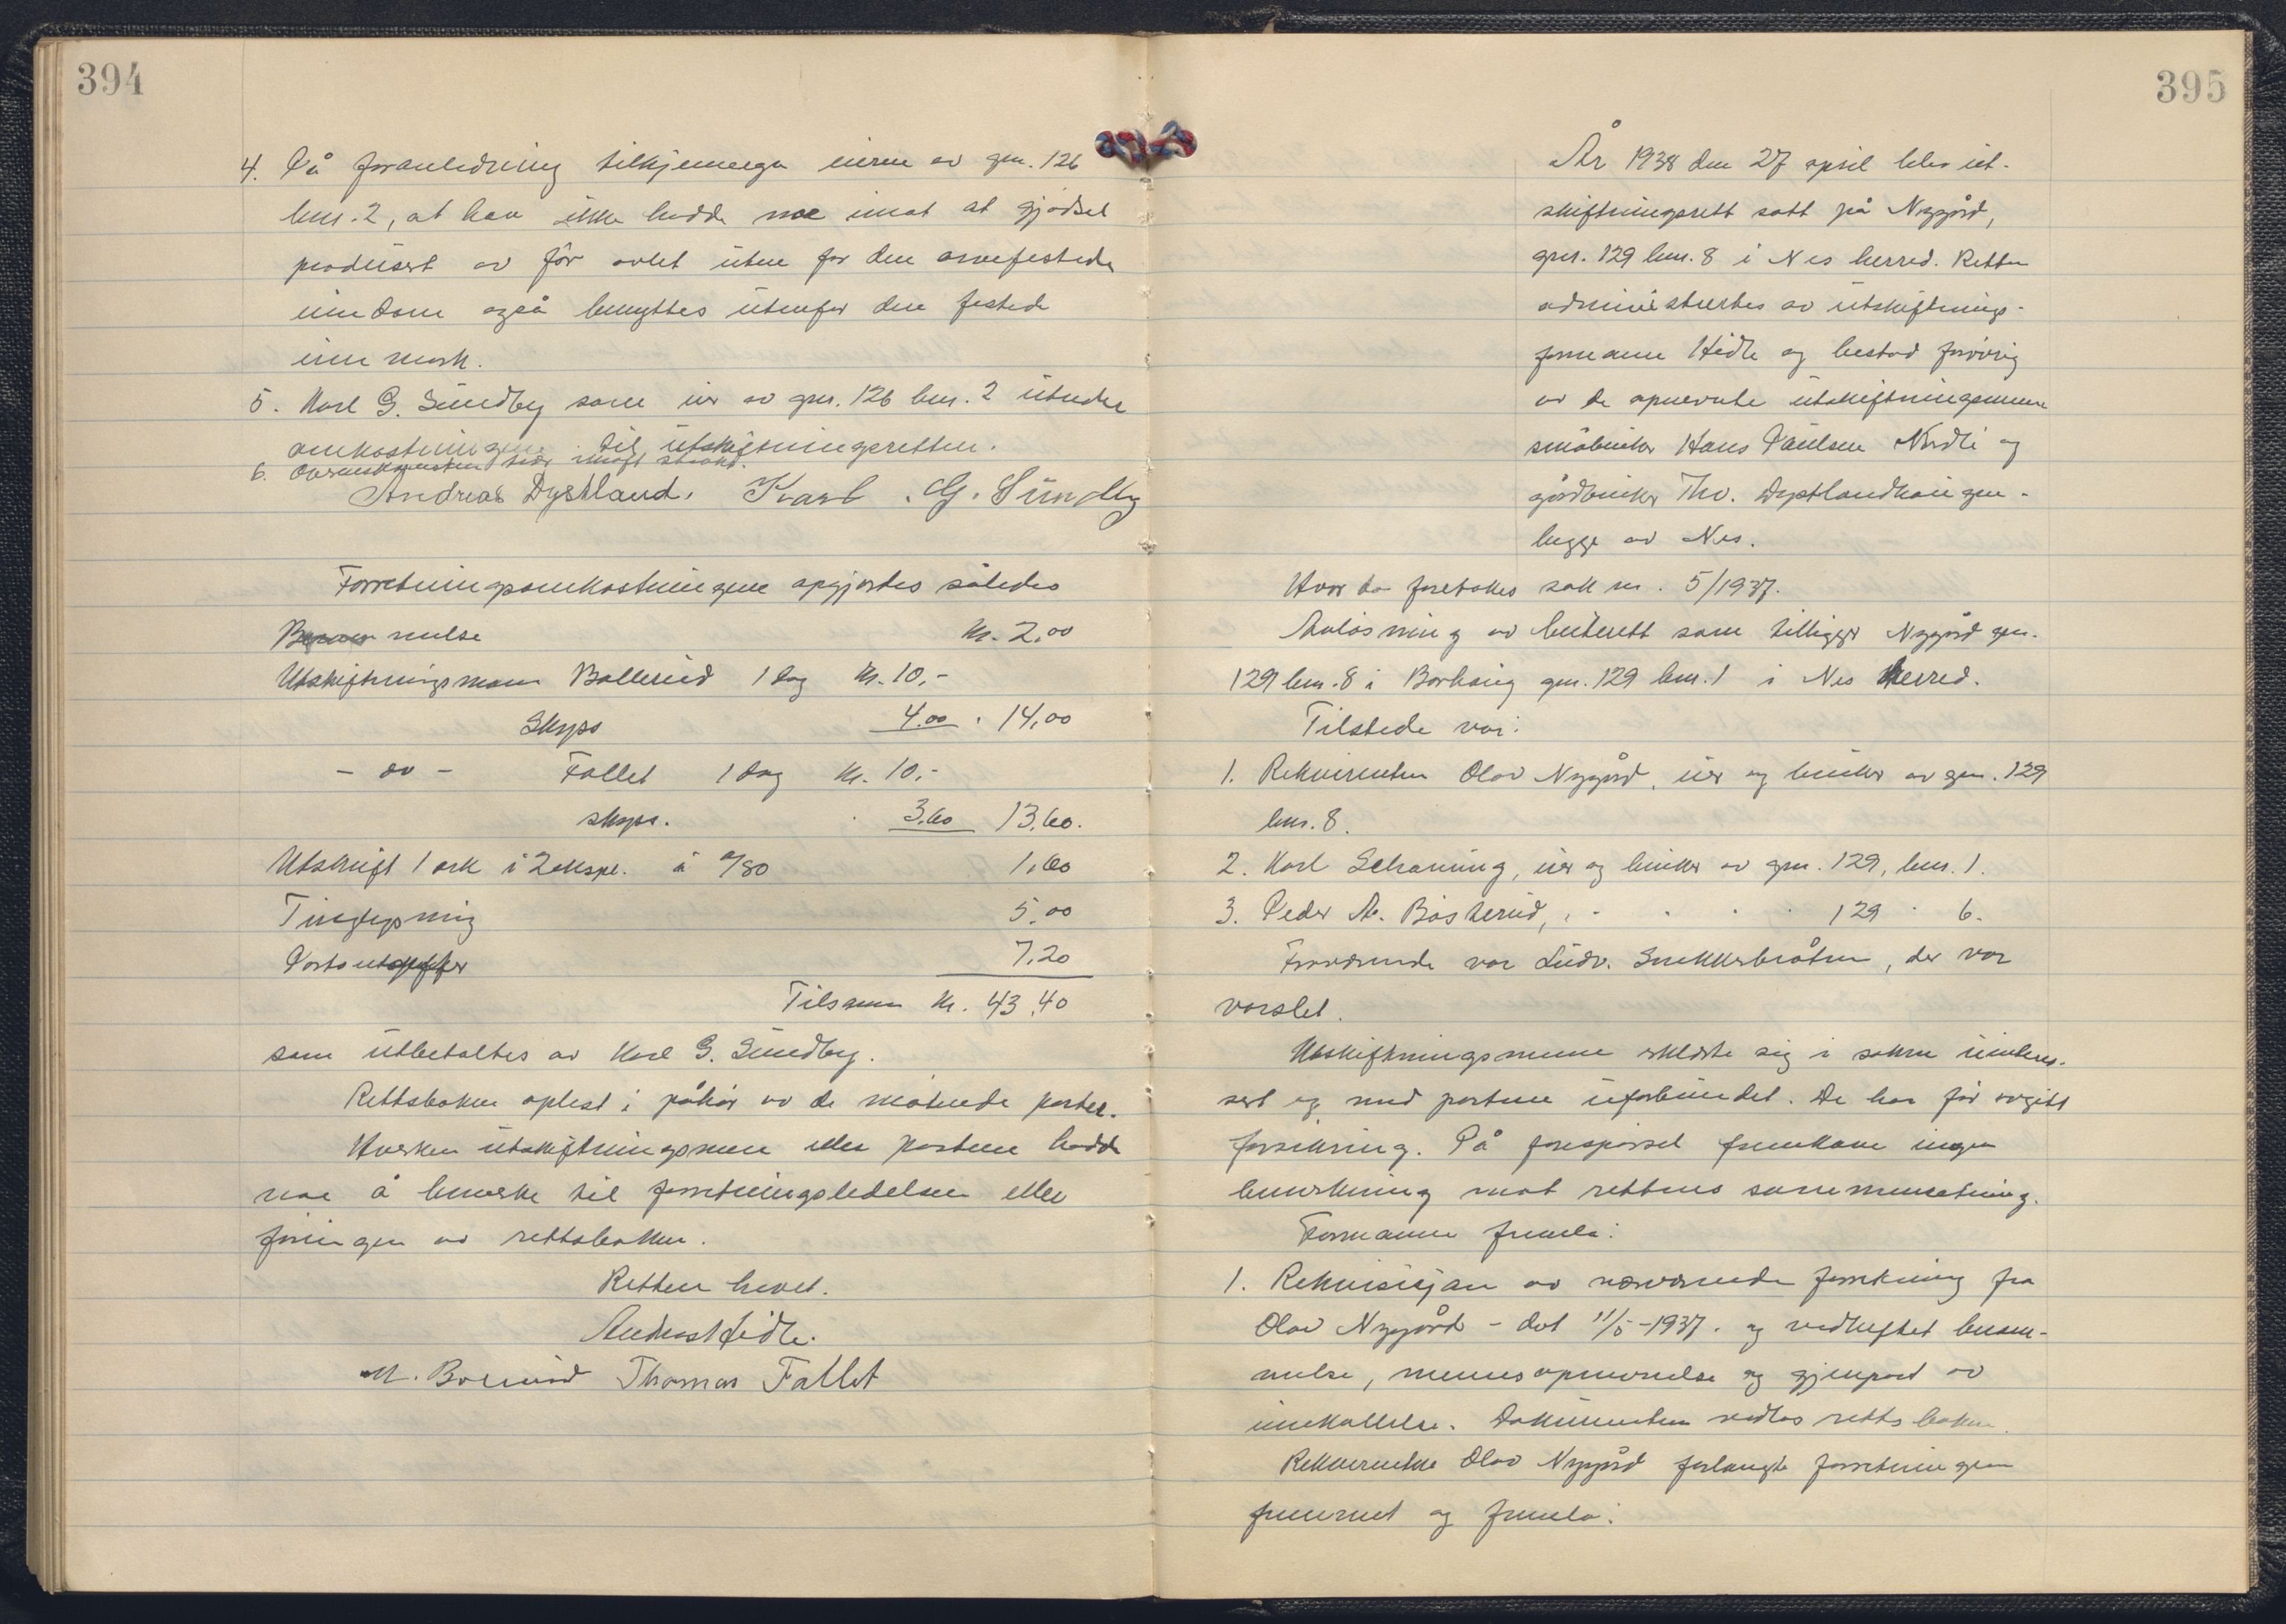 394
4. På foranledning tilkjennega eieren av gnr. 126
bnr. 2, at han ikke hadde noe imot at gjødsel
produsert av fôr avlet utenfor den arvefestede
eiendom også benyttes utenfor den festede
innmark.
5. Karl G. Sundby som eier av gnr. 126 bnr. 2 utreder
omkostningene til utskiftningsretten.
6. Overenskomsten trer i kraft straks.
Andreas Dystland. Karl G. Sundby
Forretningsomkostningene opgjordes således
Beramnelse kr. 2,00
Utskiftningsmann Ballerud 1 dag kr. 10,-
Skyss 4,00 . 14,00
- do - Fallet 1 dag kr. 10,-
skyss. 3,60 13,60.
Utskrift 1 ark i 2 ekspl. à 0/80 1,60
Tinglysning 5,00
Portoutgifter 7,20
Tilsammen kr. 43,40
som utbetaltes av Karl G. Sundby.
Rettsboken oplest i påhør av de møtende parter.
Hverken utskiftningsmenn eller partene hadde
noe å bemerke til forretningsledelsen eller
føringen av rettsboken.
Retten hevet.
Andreas Hidle.
Thomas Fallet
395
År 1938 den 27 april blev ut-
skiftningsrett satt på Nygård,
gnr. 129 bnr. 8 i Nes herred. Retten
administrertes av utskiftnings-
formann Hidle og bestod forøvrig
av de opnevnte utskiftningsmenn
småbruker Hans Paulsen Nordli og
gårdbruker Thv. Dystlandhaugen -
begge av Nes.
Hvor da foretokes sak nr. 5/1937.
Avløsning av beiterett som tilligger Nygård gnr.
129 bnr. 8 i Borhaug gnr. 129 bnr. 1 i Nes herred.
Tilstede var:
1. Rekvirenten Olav Nygård, eier og bruker av gnr. 129
bnr. 8.
2. Karl Schaning, eier og bruker av gnr. 129, bnr. 1.
3. Peder A. Bøsterud, - - - - 129 - 6.
Fraværende var Ludv. Snekkerbråten, der var
varslet.
Utskiftningsmennene erklærte sig i saken uinteres-
sert og med partene uforbundet. De har før avgitt
forsikring. På forespørsel fremkom ingen
bemerkning mot rettens sammensetning.
Formannen fremla:
1. Rekvisisjon av nærværende forretning fra
Olav Nygård - dat 11/5-1937. og vedheftet beram-
nelse, mennesopnevnelse og gjenpart av
innkallelse. Dokumenten vedlas rettsboken.
Rekvirenten Olav Nygård forlangte forretningen
fremmet og fremla: